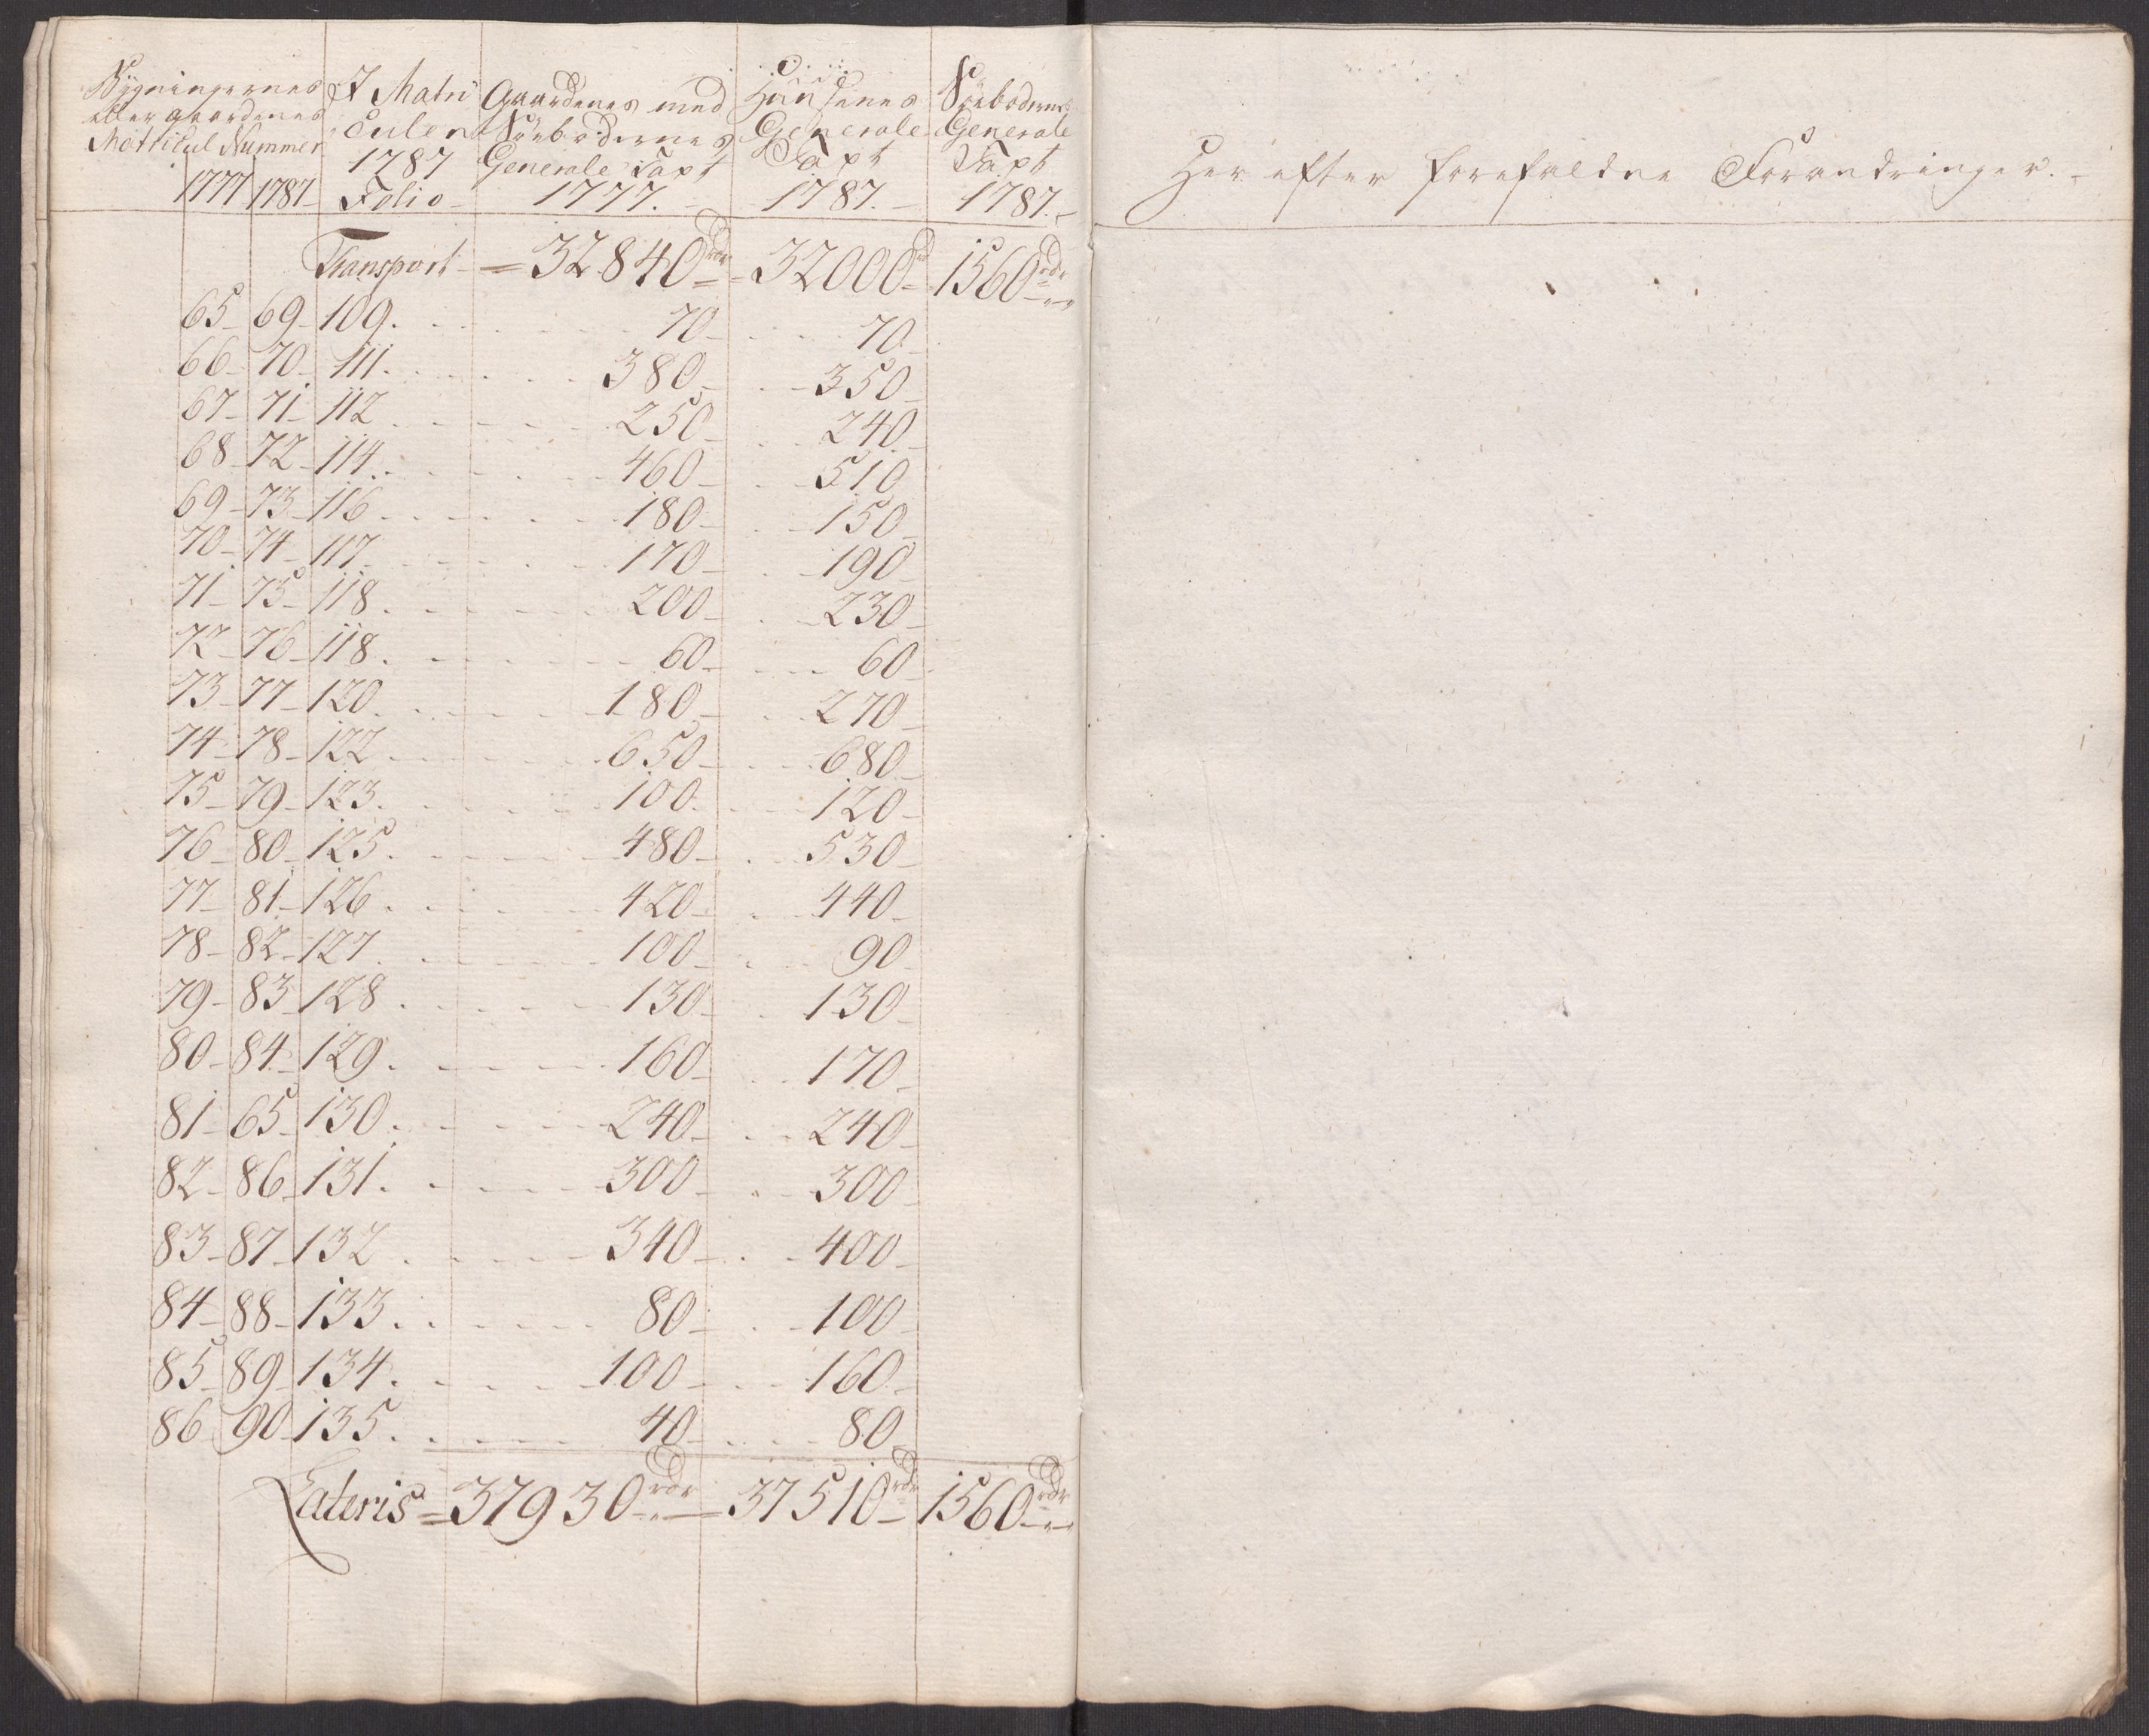 Bygningernes
eller gaardenes
Matricul Nummer
1777 1787
I Matri
culen
1787
Folio
Gaardenes med
Söebodernes
Generale Taxt
1777.
Huusenes
Generale
Taxt
1787.
Söebodernes
Generale
Taxt
1787.
Her efter forefaldne Forandringer.
Transport 32840 rdr 32000 rd 1560 rdr
65 69 109. 70 70
66 70 111. 380 350
67 71 112 250 240
68 72 114. 460 510
69 73 116 180 150
70 74 117 170 190
71 75 118. 200 230
72 76 118. 60 60
73 77 120. 180 270
74 78 122 650 680
75 79 123. 100 120
76 80 125. 480 530
77 81 126. 420 440
78 82 127 100 90
79 83 128. 130 130
80 84 129. 160 170
81 65 130. 240 240
82 86 131. 300 300
83 87 132 340 400
84 88 133. 80 100
85 89 134. 100 160
86 90 135. 40 80
Lateris 37930 rdr 37510 rdr 1560 rdr